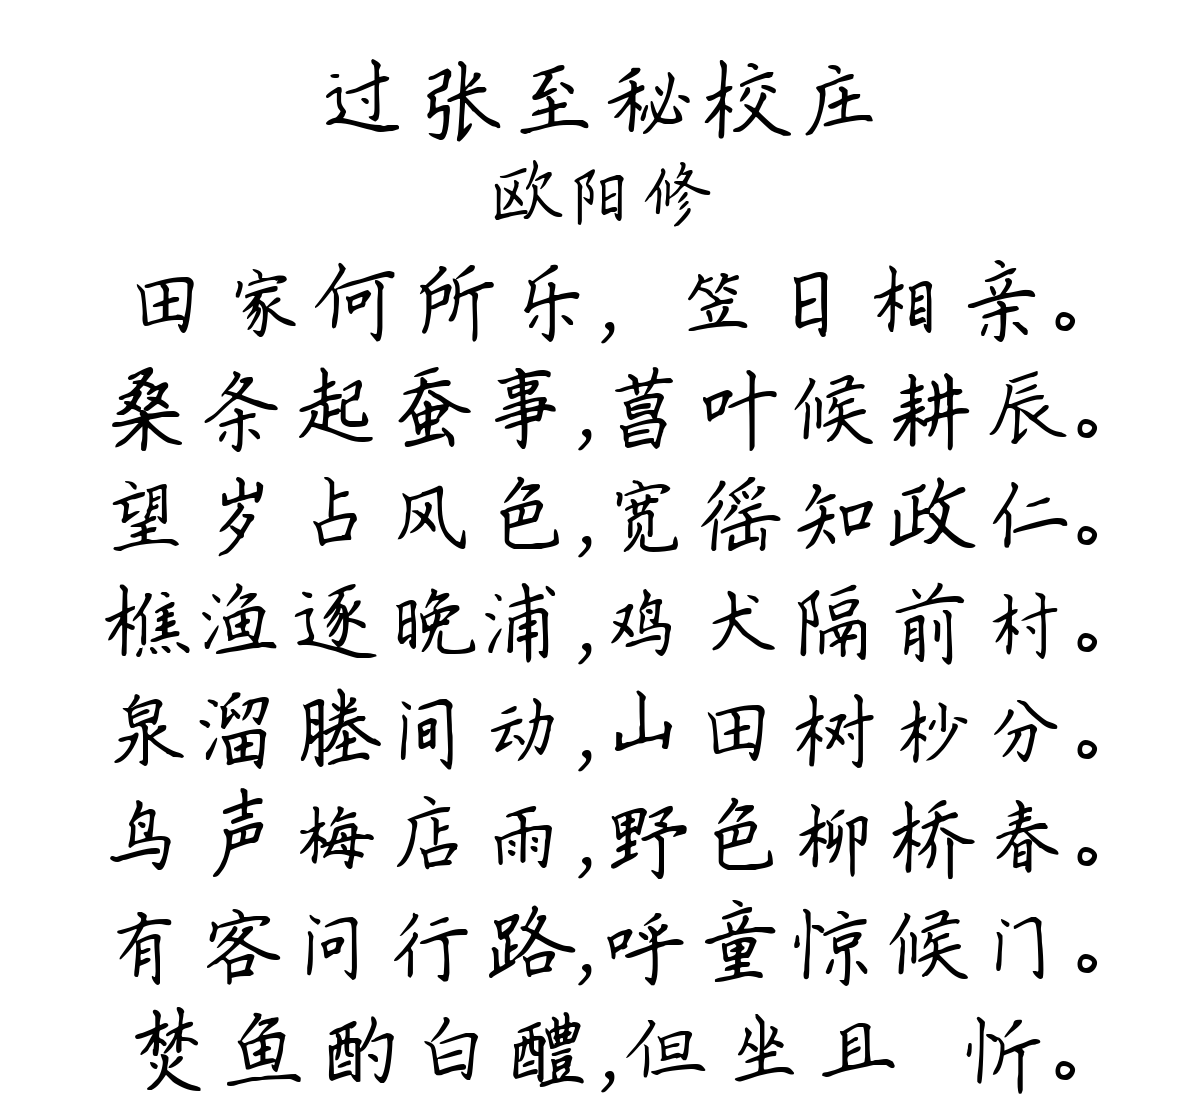 过张至秘校庄
欧阳修
田家何所乐，笠日相亲。
桑条起蚕事，菖叶候耕辰。
望岁占风色，宽徭知政仁。
樵渔逐晚浦，鸡犬隔前村。
泉溜塍间动，山田树杪分。
鸟声梅店雨，野色柳桥春。
有客问行路，呼童惊候门。
焚鱼酌白醴，但坐且 忻。